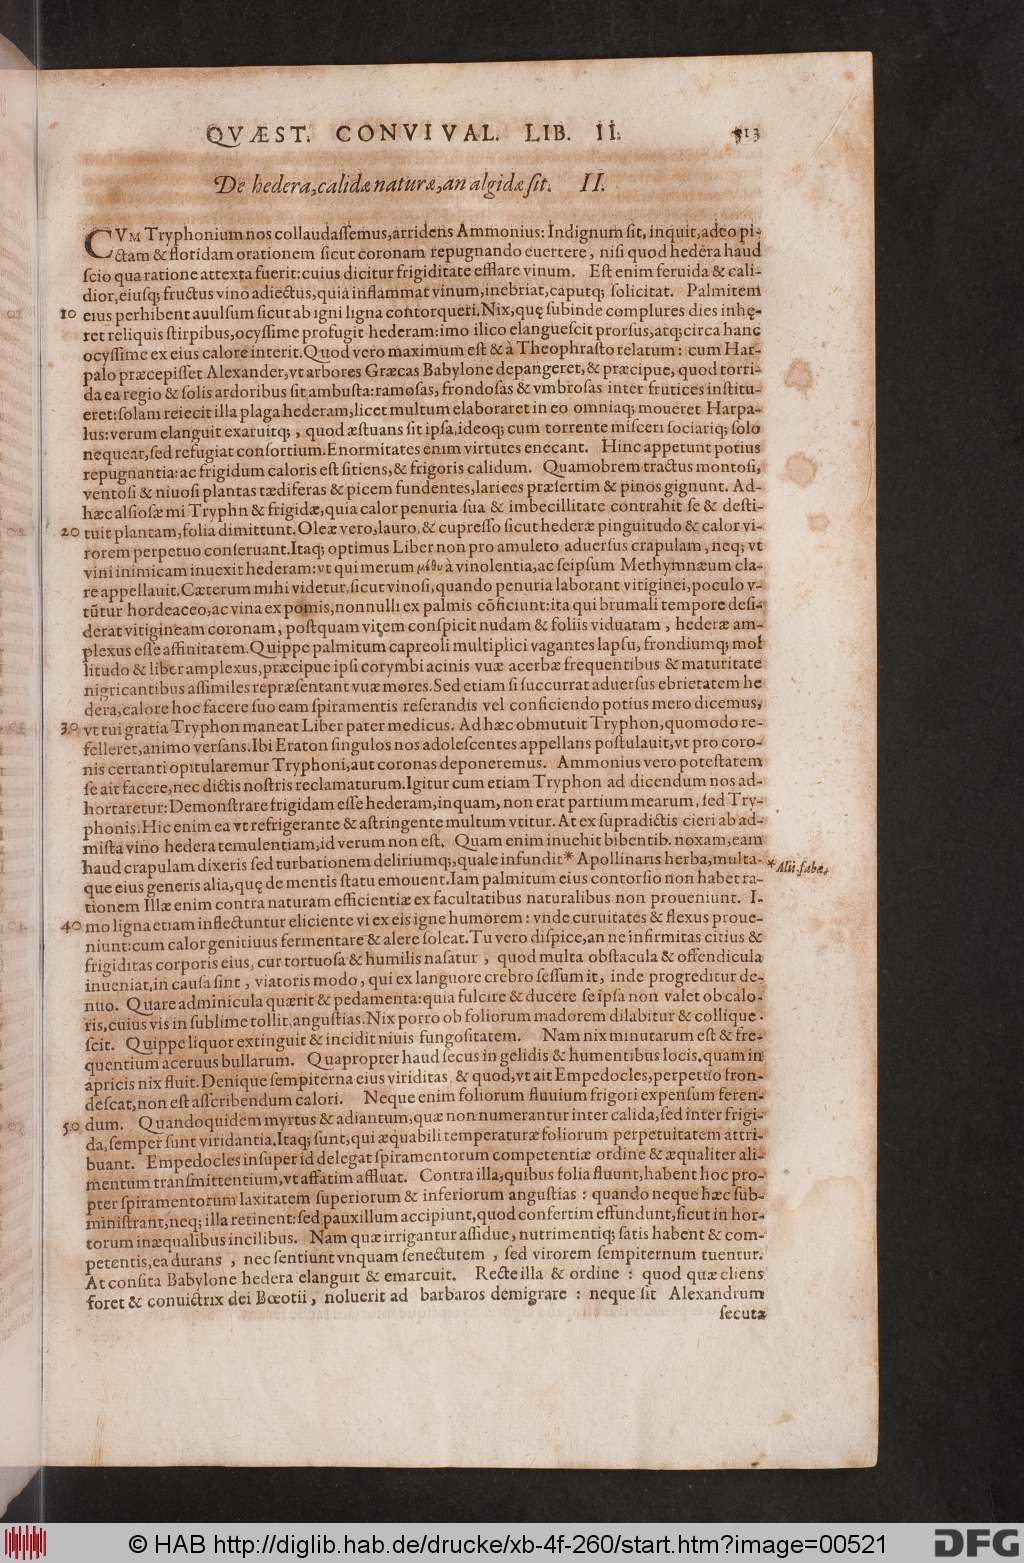 QVÆST. CONVIVAL. LIB. II. 813
De hedera, calidæ naturæ, an algidæ sit. II.
CVM Tryphonium nos collaudassemus, arridens Ammonius: Indignum sit, inquit, adeo pi-
ctam & floridam orationem sicut coronam repugnando euertere, nisi quod hedera haud
scio qua ratione attexta fuerit: cuius dicitur frigiditate efflare vinum. Est enim feruida & cali-
dior, eiusq; fructus vino adiectus, quia inflammat vinum, inebriat, caputq; solicitat. Palmitem
10 eius perhibent auulsum sicut ab igni ligna contorqueri. Nix, quę subinde complures dies inhę-
ret reliquis stirpibus, ocyssime profugit hederam: imo ilico elanguescit prorsus, atq; circa hanc
ocyssime ex eius calore interit. Quod vero maximum est & à Theophrasto relatum: cum Har-
palo præcepisset Alexander, vt arbores Græcas Babylone depangeret, & præcipue, quod torri-
da ea regio & solis ardoribus sit ambusta: ramosas, frondosas & vmbrosas inter frutices institu-
eret: solam reiecit illa plaga hederam, licet multum elaboraret in eo omniaq; moueret Harpa-
lus: verum elanguit exaruitq; , quod æstuans sit ipsa, ideoq; cum torrente misceri sociariq; solo
nequeat, sed refugiat consortium. Enormitates enim virtutes enecant. Hinc appetunt potius
repugnantia: ac frigidum caloris est sitiens, & frigoris calidum. Quamobrem tractus montosi,
ventosi & niuosi plantas tædiferas & picem fundentes, larices præsertim & pinos gignunt. Ad-
hæc alsiosæ mi Tryphn & frigidæ, quia calor penuria sua & imbecillitate contrahit se & desti-
20 tuit plantam, folia dimittunt. Oleæ vero, lauro, & cupresso sicut hederæ pinguitudo & calor vi-
rorem perpetuo conseruant. Itaq; optimus Liber non pro amuleto aduersus crapulam, neq; vt
vini inimicam inuexit hederam: vt qui merum μέθυ à vinolentia, ac seipsum Methymnæum cla-
re appellauit. Cæterum mihi videtur, sicut vinosi, quando penuria laborant vitiginei, poculo v-
tūtur hordeaceo, ac vina ex pomis, nonnulli ex palmis cōficiunt: ita qui brumali tempore desi-
derat vitigineam coronam, postquam vitem conspicit nudam & foliis viduatam, hederæ am-
plexus esse affinitatem. Quippe palmitum capreoli multiplici vagantes lapsu, frondiumq; mol
litudo & liber amplexus, præcipue ipsi corymbi acinis vuæ acerbæ frequentibus & maturitate
nigricantibus assimiles repræsentant vuæ mores. Sed etiam si succurrat aduersus ebrietatem he
dera, calore hoc facere suo eam spiramentis reserandis vel conficiendo potius mero dicemus,
30 vt tui gratia Tryphon maneat Liber pater medicus. Ad hæc obmutuit Tryphon, quomodo re-
felleret, animo versans. Ibi Eraton singulos nos adolescentes appellans postulauit, vt pro coro-
nis certanti opitularemur Tryphoni, aut coronas deponeremus. Ammonius vero potestatem
se ait facere, nec dictis nostris reclamaturum. Igitur cum etiam Tryphon ad dicendum nos ad-
hortaretur: Demonstrare frigidam esse hederam, inquam, non erat partium mearum, sed Try-
phonis. Hic enim ea vt refrigerante & astringente multum vtitur. At ex supradictis cieri ab ad-
mista vino hedera temulentiam, id verum non est. Quam enim inuehit bibentib. noxam, eam
haud crapulam dixeris sed turbationem deliriumq;, quale infundit* Apollinaris herba, multa- *Alii. fabæ.
que eius generis alia, quę de mentis statu emouent. Iam palmitum eius contorsio non habet ra-
tionem Illæ enim contra naturam efficientiæ ex facultatibus naturalibus non proueniunt. I-
40 mo ligna etiam inflectuntur eliciente vi ex eis igne humorem: vnde curuitates & flexus proue-
niunt: cum calor genitiuus fermentare & alere soleat. Tu vero dispice, an ne infirmitas citius &
frigiditas corporis eius, cur tortuosa & humilis nasatur , quod multa obstacula & offendicula
inueniat, in causa sint, viatoris modo, qui ex languore crebro sessum it, inde progreditur de-
nuo. Quare adminicula quærit & pedamenta: quia fulcire & ducere se ipsa non valet ob calo-
ris, cuius vis in sublime tollit, angustias. Nix porro ob foliorum madorem dilabitur & collique-
scit. Quippe liquor extinguit & incidit niuis fungositatem. Nam nix minutarum est & fre-
quentium aceruus bullarum. Quapropter haud secus in gelidis & humentibus locis, quam in
apricis nix fluit. Denique sempiterna eius viriditas, & quod, vt ait Empedocles, perpetuo fron-
descat, non est asscribendum calori. Neque enim foliorum fluuium frigori expensum feren-
50 dum. Quandoquidem myrtus & adiantum, quæ non numerantur inter calida, sed inter frigi-
da, semper sunt viridantia. Itaq; sunt, qui æquabili temperaturæ foliorum perpetuitatem attri-
buant. Empedocles insuper id delegat spiramentorum competentiæ ordine & æqualiter ali-
mentum transmittentium, vt affatim affluat. Contra illa, quibus folia fluunt, habent hoc pro-
pter spiramentorum laxitatem superiorum & inferiorum angustias : quando neque hæc sub-
ministrant, neq; illa retinent: sed pauxillum accipiunt, quod confertim effundunt, sicut in hor-
torum inæqualibus incilibus. Nam quæ irrigantur assidue, nutrimentiq; satis habent & com-
petentis, ea durans , nec sentiunt vnquam senectutem , sed virorem sempiternum tuentur.
At consita Babylone hedera elanguit & emarcuit. Recte illa & ordine : quod quæ cliens
foret & conuictrix dei Bœotii, noluerit ad barbaros demigrare : neque sit Alexandrum
secuta
© HAB http://diglib.hab.de/drucke/xb-4f-260/start.htm?image=00521
DFG